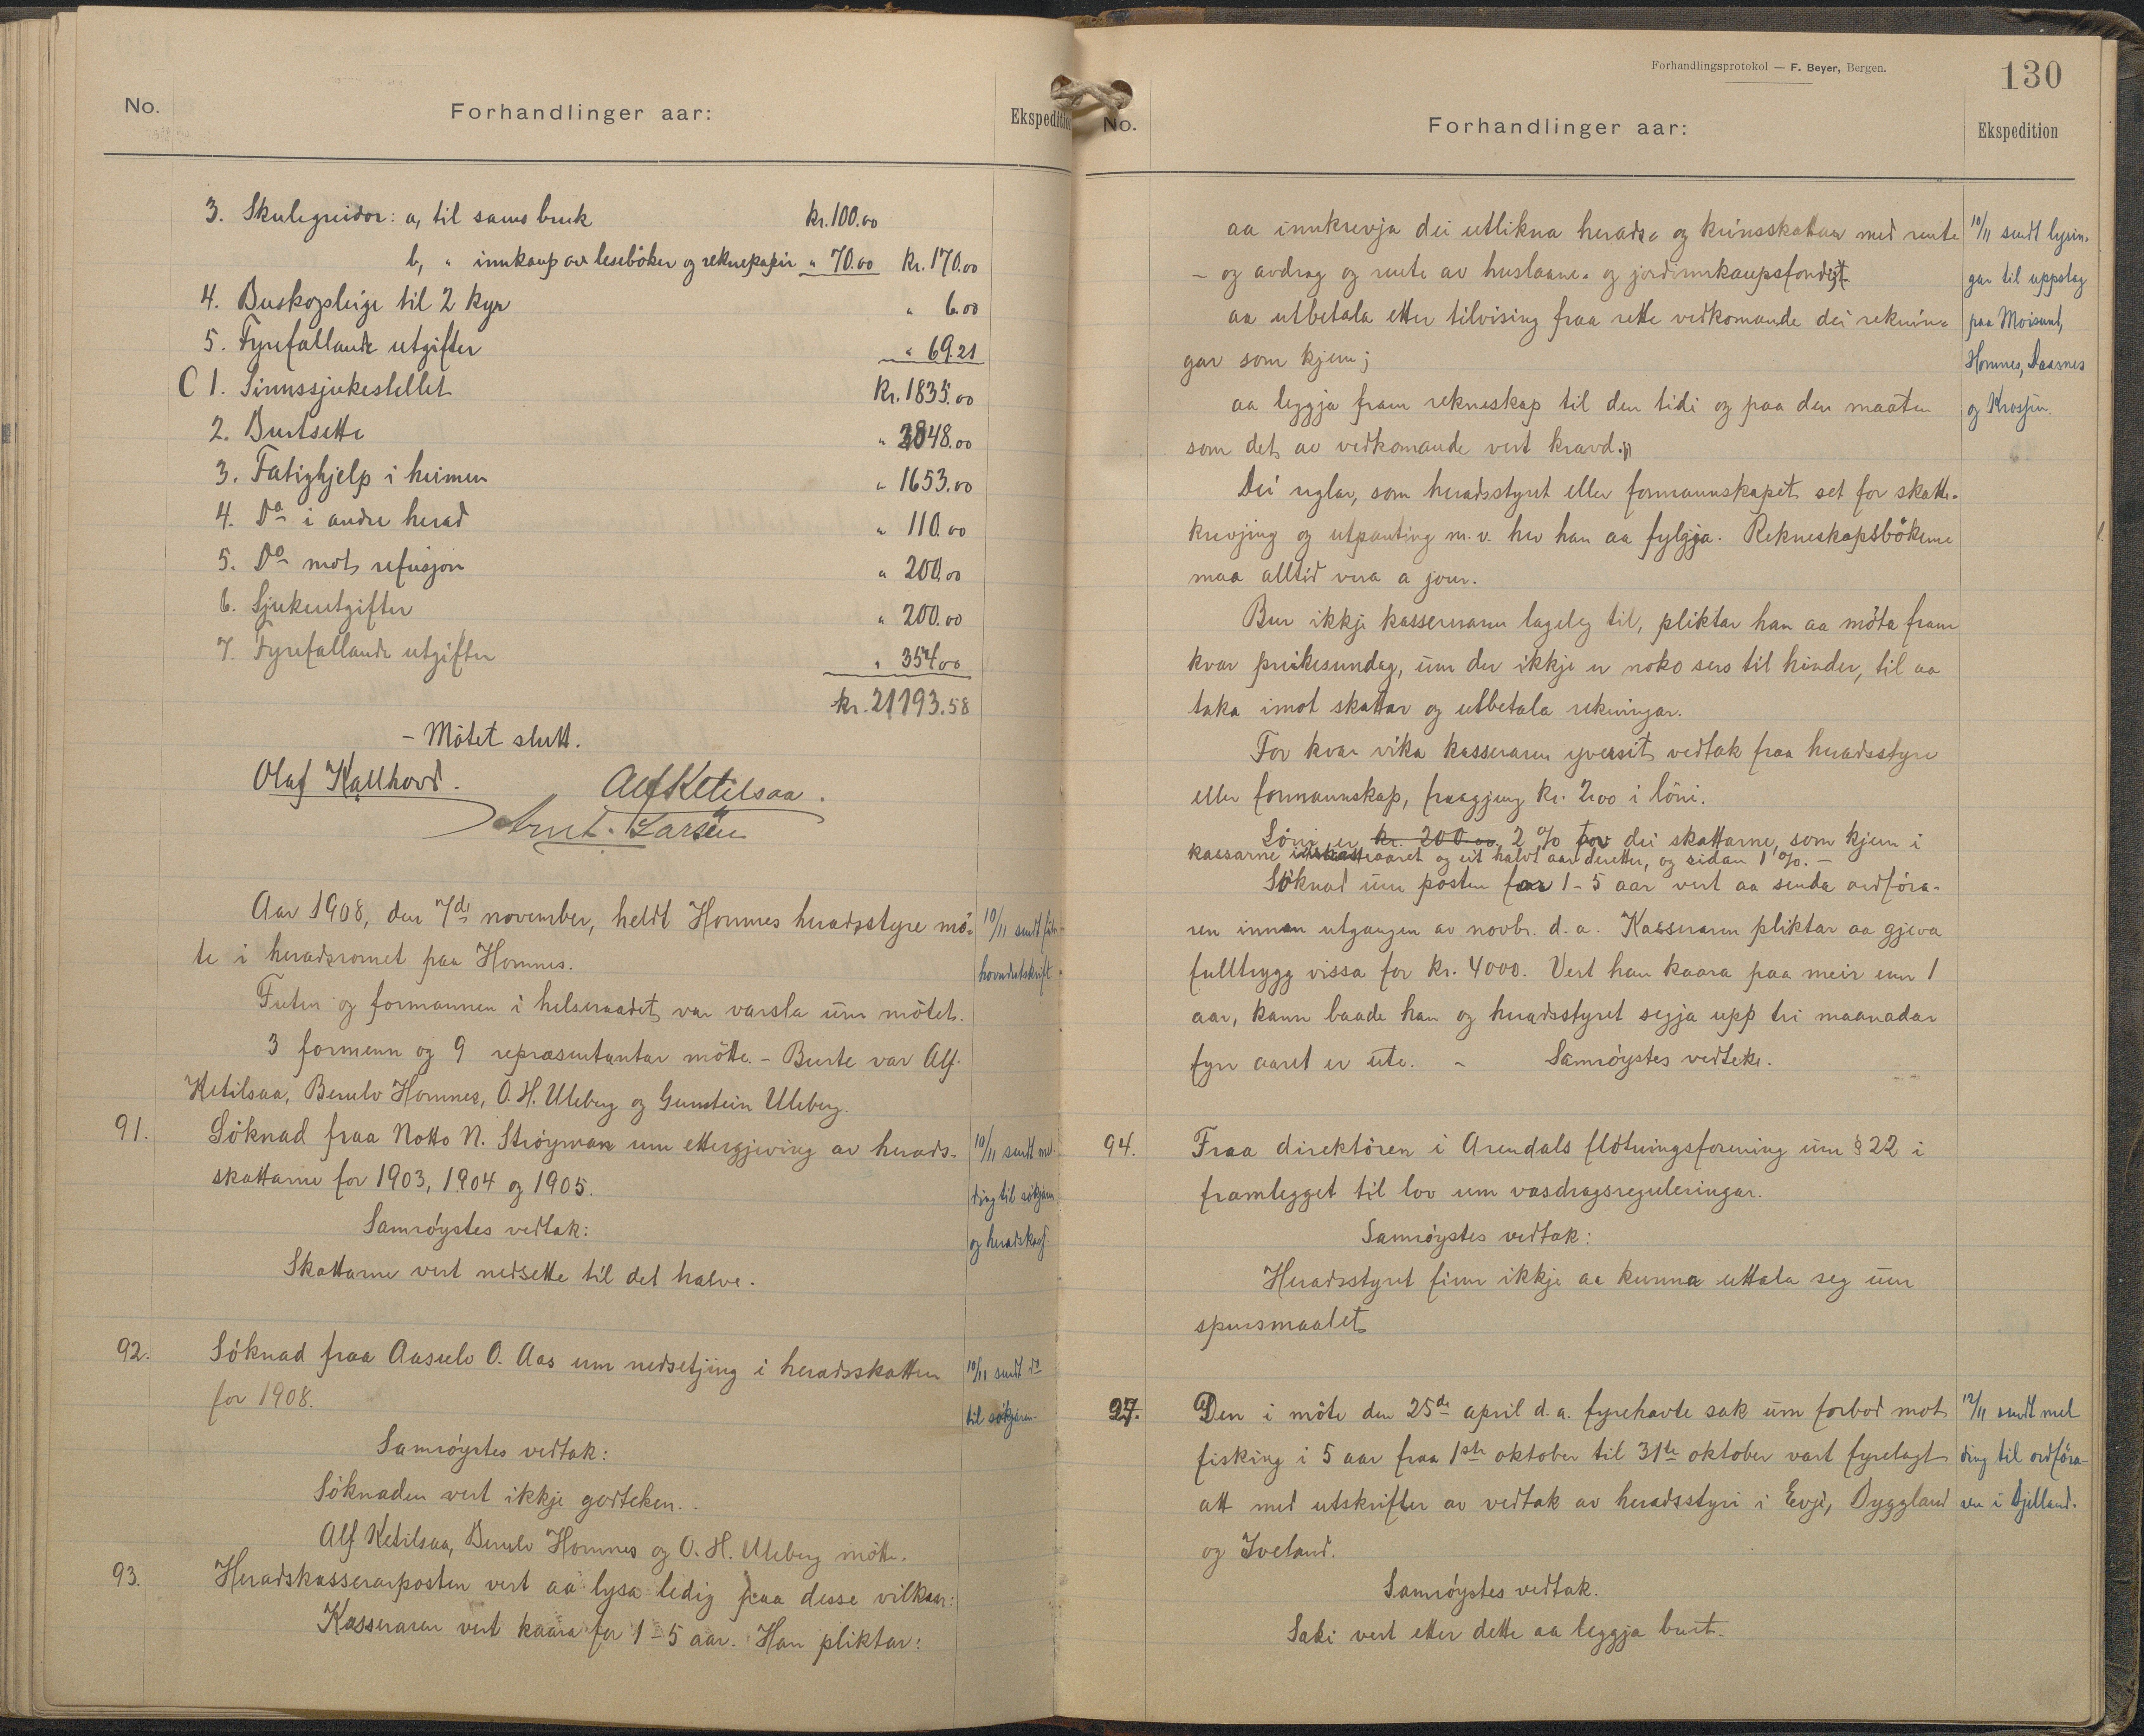 No.
Forhandlinger aar:
Ekspedition
3. Skulegreidor: a, til sams bruk kr. 100.00
b, " innkaup av lesebøker og reknepapir " 70.00 kr. 170.00
4. Buskapsleige til 2 kyr " 6.00
5. Fyrefallande utgifter " 69.21
C 1. Sinnssjukestellet Kr. 1835.00
2. Burtsette " 3848.00
3. Fatighjelp i heimen " 1653.00
4. Do i andre herad " 110.00
5. Do mot refusjon " 200.00
6. Sjukeutgifter " 200.00
7. Fyrefallande utgifter " 354.00
kr. 21193.58
- Møtet slutt.
Olaf Kallhovd. Alf Ketilsaa.
Arnt. Larsen
Aar 1908, den 7de november, heldt Hornnes heradsstyre mø-
te i heradsromet paa Hornnes.
10/11 sendt futen
hovudutskrift
Futen og formannen i helseraadet var varsla um møtet.
3 formenn og 9 repræsentantar møtte. - Burte var Alf.
Ketilsaa, Berulv Hornnes, O. H. Uleberg og Gunstein Uleberg.
91. Søknad fraa Notto N. Strøyman um ettergjeving av herads-
skattarne for 1903, 1904 og 1905.
10/11 sendt mel-
ding til søkjaren
og heradskass.
Samrøystes vedtak:
Skattarne vert nedsette til det halve.
92. Søknad fraa Aasulv O. Aas um nedsetjing i heradsskatten
for 1908.
10/11 sendt do
til søkjaren.
Samrøystes vedtak:
Søknaden vert ikkje godteken.
Alf Ketilsaa, Berulv Hornnes og O. H. Uleberg møtte.
93. Heradskasserarposten vert aa lysa ledig paa desse vilkaar:
Kasseraren vert kaara for 1-5 aar. Han pliktar:
Forhandlingsprotokol — F. Beyer, Bergen.
130
No.
Forhandlinger aar:
Ekspedition
aa innkrevja dei utlikna herads- og krinsskattar med rente
- og avdrag og rente av huslaane- og jordinnkaupsfondet
aa utbetala etter tilvising fraa rette vedkomande dei reknin-
gar som kjem;
aa leggja fram rekneskap til den tidi og paa den maaten
som det av vedkomande vert kravd.
10/11 sendt lysin-
gar til uppslag
paa Moisund,
Hornnes, Daasnes
og Krossen.
Dei reglar, som heradsstyret eller formannskapet set for skatte-
krevjing og utpanting m. v. hev han aa fylgja. Rekneskapsbøkerne
maa alltid vera a jour.
Bur ikkje kasseraren lageleg til, pliktar han aa møta fram
kvar preikesundag, um der ikkje er noko sers til hinder, til aa
taka imot skattar og utbetala rekningar.
For kvar vika kasseraren yversit vedtak fraa heradsstyre
eller formannskap, fraagjeng kr. 2.00 i løni.
Løni er kr. 200.00, 2 % av dei skattarne, som kjem i
kassarne i skatteaaret og eit halvt aar deretter, og sidan 1 %. -
Søknad um posten for 1-5 aar vert aa senda ordføra-
ren innan utgangen av novbr. d. a. Kasseraren pliktar aa gjeva
fulltrygg vissa for kr. 4000. Vert han kaara paa meir enn 1
aar, kann baade han og heradsstyret segja upp tri maanadar
fyre aaret er ute. - Samrøystes vedteke.
94. Fraa direktøren i Arendals fløtningsforening um § 22 i
framlegget til lov um vasdragsreguleringar.
Samrøystes vedtak:
Heradsstyret finn ikkje aa kunna uttala seg um
spursmaalet
27. Den i møte den 25de april d. a. fyrehavde sak um forbod mot
fisking i 5 aar fraa 1ste oktober til 31te oktober vart fyrelagt
att med utskrifter av vedtak av heradsstyri i Evje, Byggland
og Iveland.
12/11 sendt mel
ding til ordføra-
ren i Bjelland.
Samrøystes vedtak.
Saki vert etter dette aa leggja burt.